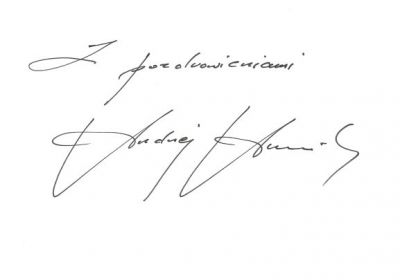 Z pozdrowieniami
Andrzej